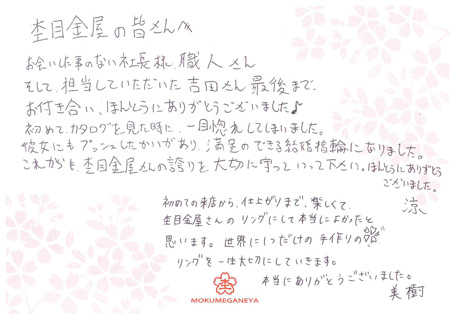 杢目金屋の皆さんへ
お会いした事のない社長様、職人さん
そして、担当していただいた吉田さん 最後まで、
お付き合い、ほんとうにありがとうございました♪
初めて、カタログを見た時に、一目惚れしてしまいました。
彼女にもプッシュしたかいがあり、満足のできる結婚指輪になりました。
これからも、杢目金屋さんの誇りを大切に守っていって下さい。ほんとうにありがとう
ございました。
涼
初めての来店から、仕上がりまで、楽しくて、
杢目金屋さんのリングにして本当によかったと
思います。世界に1つだけの手作りの
リングを一生大切にしていきます。
本当にありがとうございました。
美樹
MOKUMEGANEYA